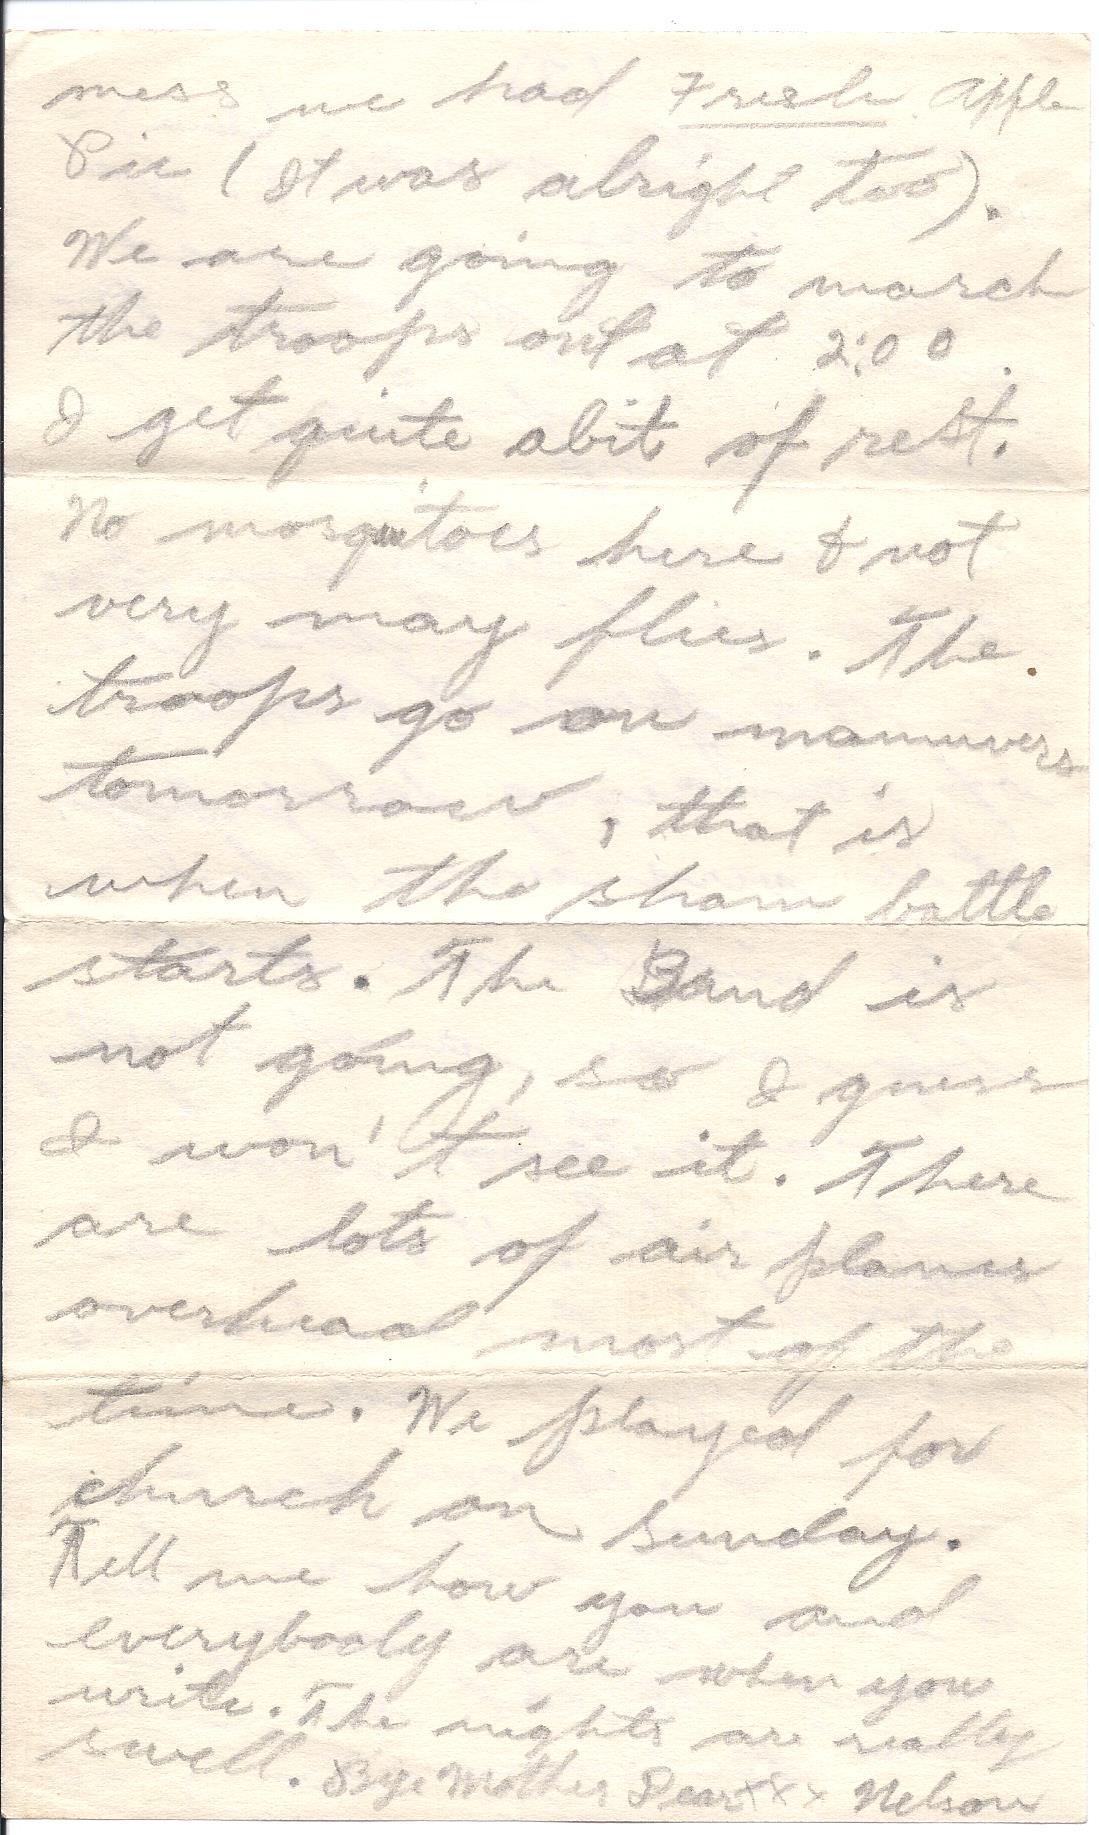 mess we had Fresh Apple
Pie (It was alright too).
We are going to march
the troops out at 2:00.
I get quite abit of rest.
No mosquitoes here & not
very may flies. The
troops go on manuvers
tomorrow, that is
when the sham battle
starts. The Band is
not going, so I guess
I won't see it. There
are lots of air planes
overhead most of the
time. We played for
church on Sunday.
Tell me how you and
everybody are when you
write. The nights are really
swell. Bye Mother Dear xxx Nelson